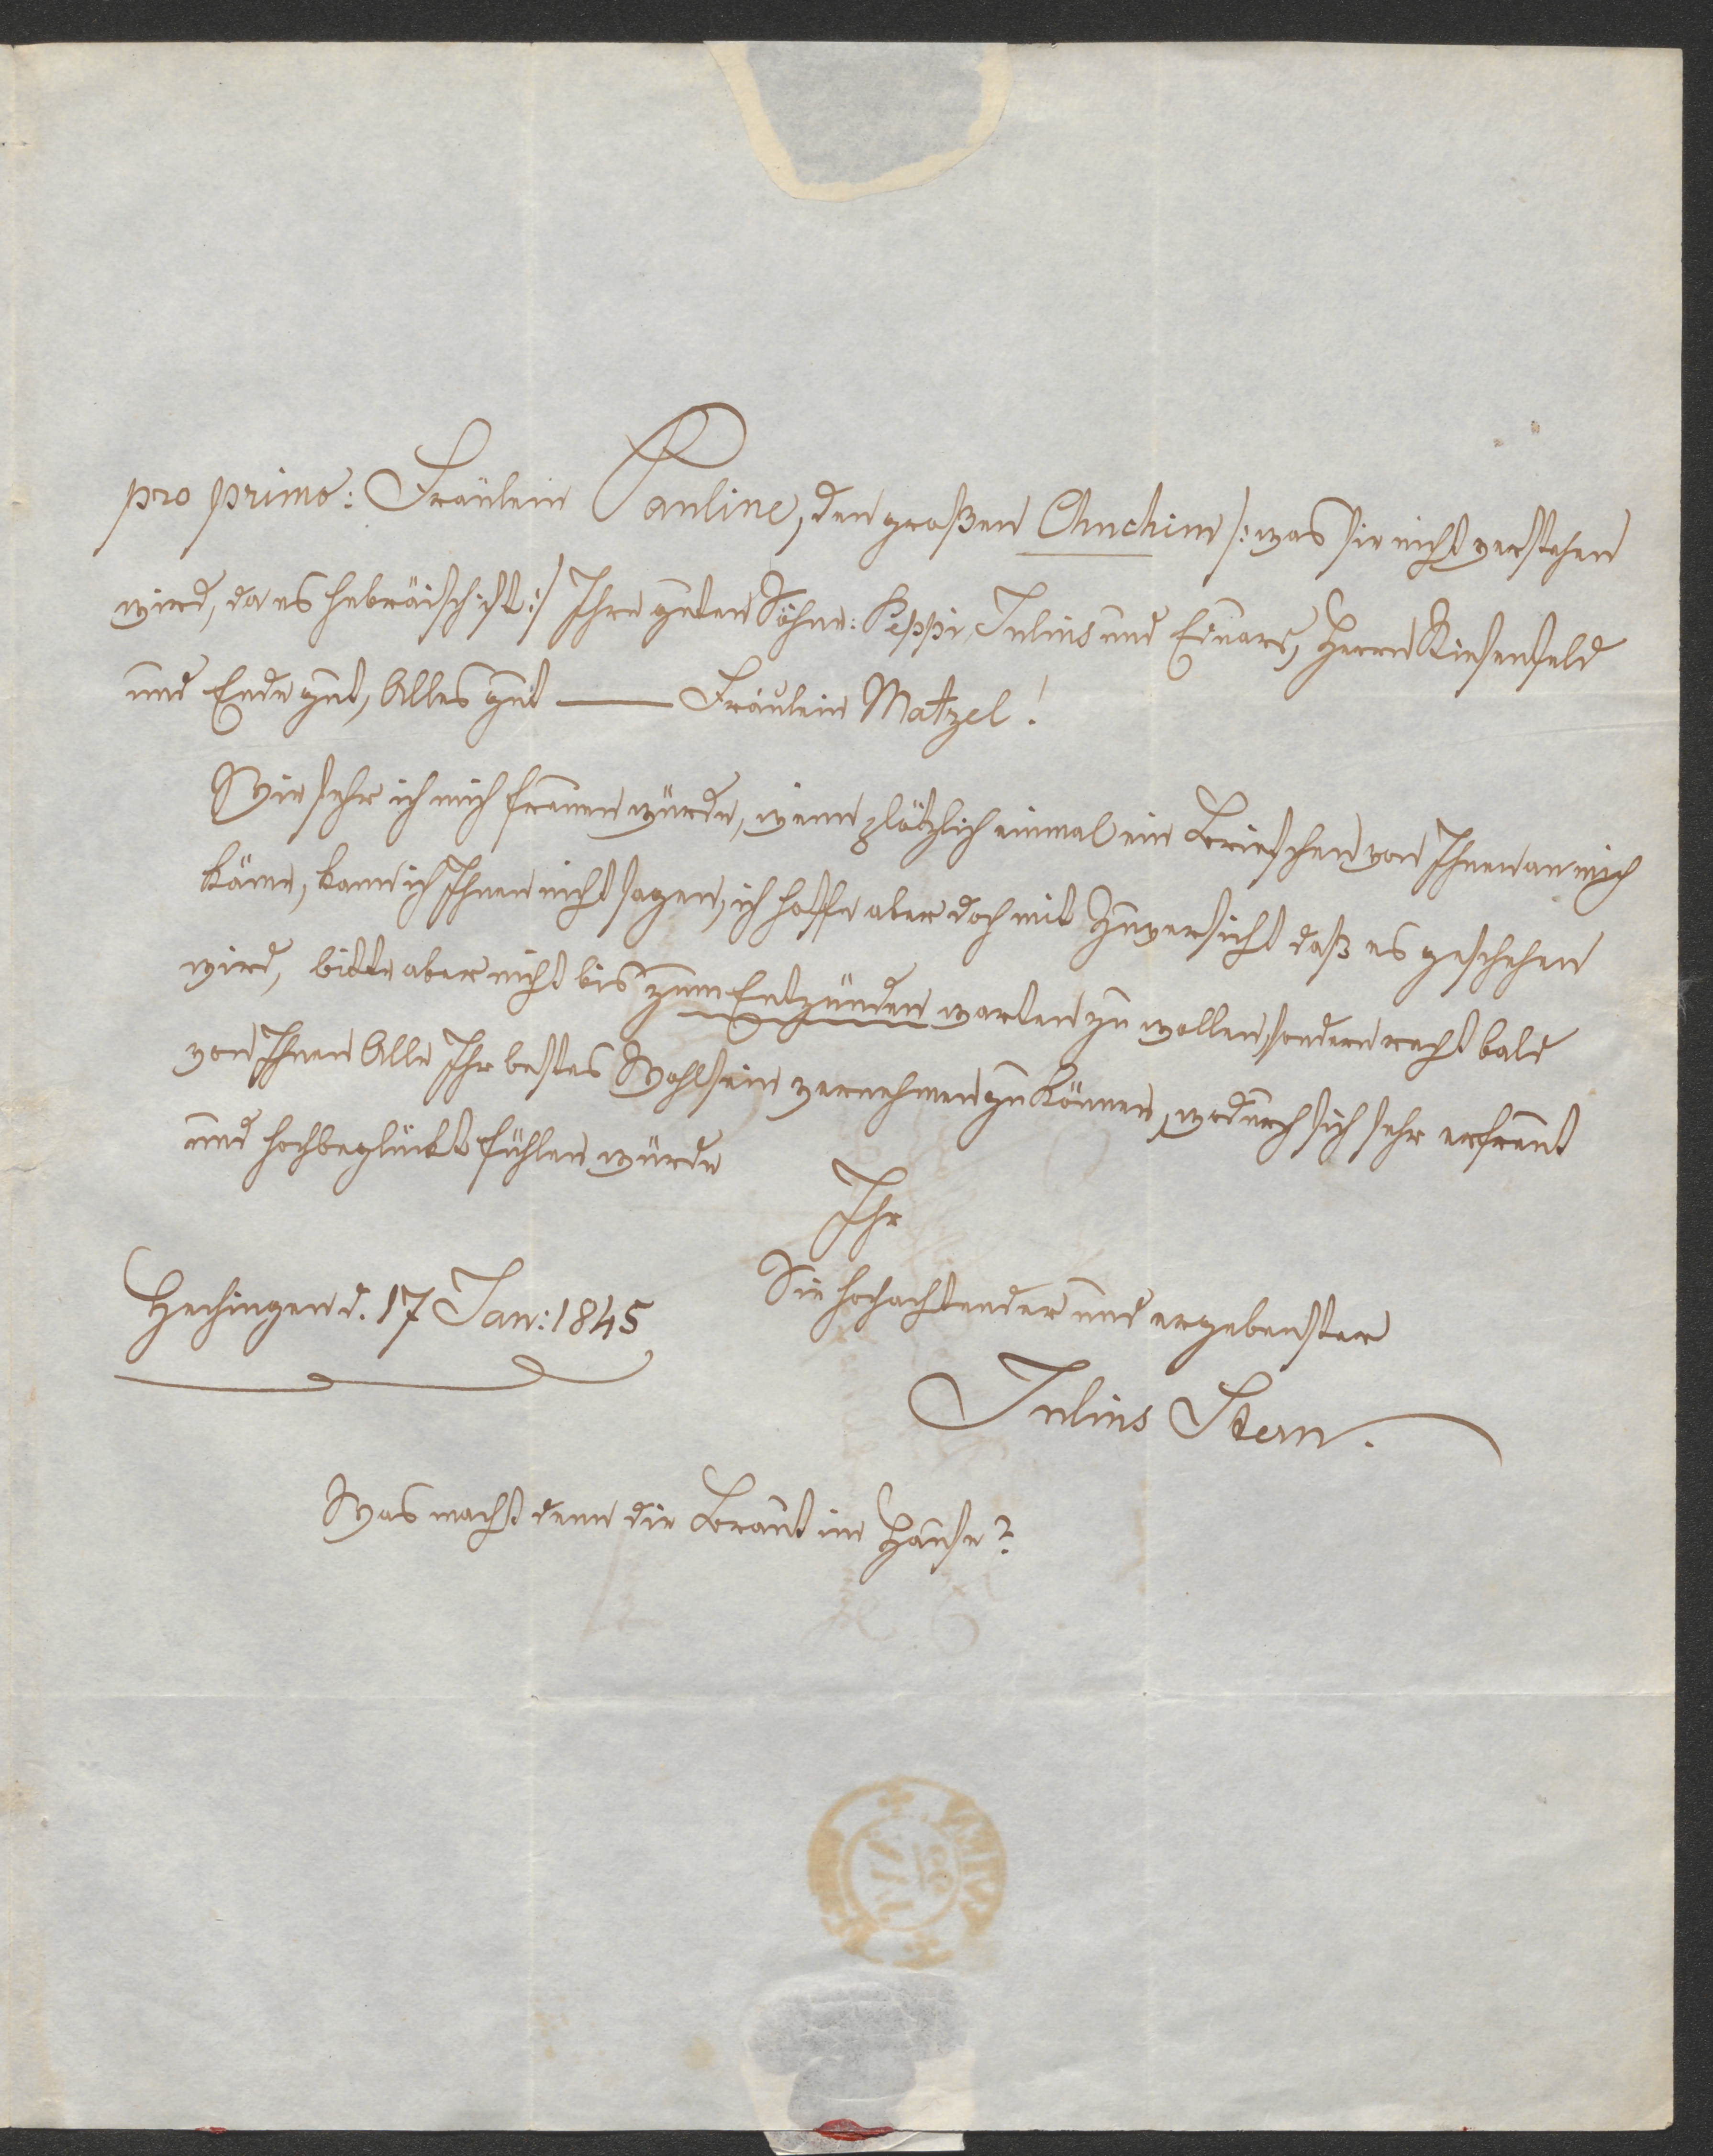 pro primo: Fräulein Pauline, den großen Chuchim /: was sie nicht verstehen
wird, da es hebräisch ist :/ Ihre guten Söhne: Peppi, Julius und Eduard, Herrn Riesenfeld
und Ende gut, Alles gut —— Fräulein Matzel!
Wie sehr ich mich freuen würde, wenn plötzlich einmal ein Briefchen von Ihnen an mich
käme, kann ich Ihnen nicht sagen, ich hoffe aber doch mit Zuversicht daß es geschehen
wird, bitte aber nicht bis zum Entzünden warten zu wollen, sondern recht bald
von Ihnen Alle Ihr bestes Wohlsein vernehmen zu können, wodurch sich sehr erfreut
und hochbeglückt fühlen würde
Ihr
Sie hochachtender und ergebenster
Hechingen d. 17 Jan: 1845
Julius Stern.
Was macht denn die Braut im Hause?